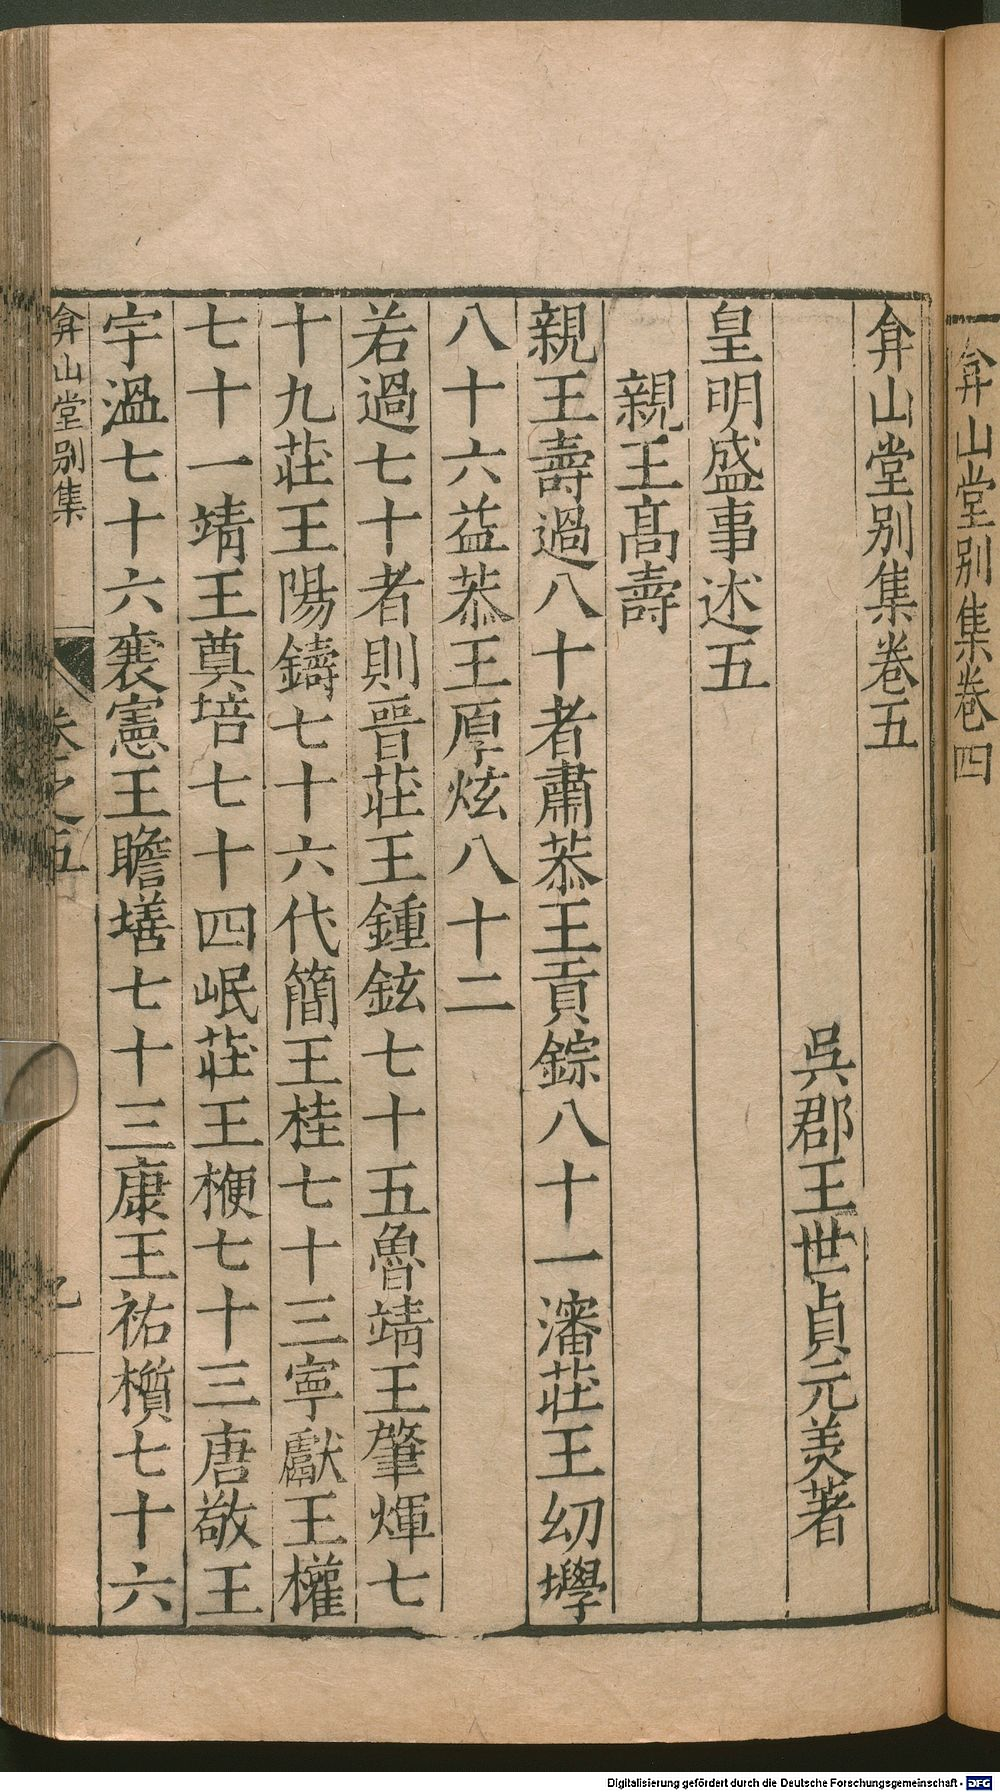 弇山堂别集卷四
弇山堂别集卷五
吳郡王世貞元美著
皇明盛事述五
親王髙壽
親王壽過八十者肅恭王貢錝八十一瀋莊王幼㙾
八十六益恭王厚炫八十二
若過七十者則晉莊王鍾鉉七十五魯靖王肇煇七
十九莊王陽鑄七十六代簡王桂七十三寧獻王權
七十一靖王奠培七十四岷莊王楩七十三唐敬王
宇溫七十六襄憲王瞻墡七十三康王祐櫍七十六
弇山堂别集
卷之五
Digitalisierung gefördert durch die Deutsche Forschungsgemeinschaft - DFG